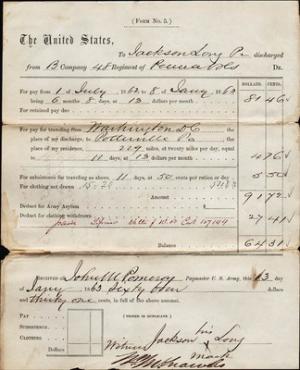 (FORM No. 5.)
The United States,
To Jackson Long Pr discharged
from B Company 48 Regiment of Penna Vols Dr.
DOLLARS. CENTS.
For pay from 1 of July 1862 8 of Jany 1863
being 6 months 8 days, at 13 dollars per month 81 46
For pay for traveling from Washington DC the
place of my discharge, to Pottsville Pa the
place of my residence, 219 miles, at twenty miles per day, equal
to 11 days, at 13 dollars per month 4 76
For subsistence for traveling as above 11 days, at 50 cents per ration or day 5 50
For clothing not drawn
91 72
Deduct for Army Asylum
Deduct for clothing overdrawn 27 41
Balance 64 31
RECEIVED of John W Pomeroy Paymaster U. S. Army, this 13 day
of Jany 1863 Sixty four dollars
and thirty one cents, in full of the above account.
PAY
SUBSISTENCE
CLOTHING
Dollars
(SIGNED IN DUPLICATE)
his
Witness Jackson X Long
mark